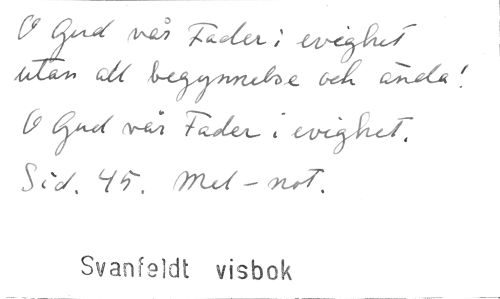 O Gud vår Fader i evighet
utan all begynnelse och ända!
O Gud vår Fader i evighet.
Sid. 45. Mel-not.
Svanfeldt visbok